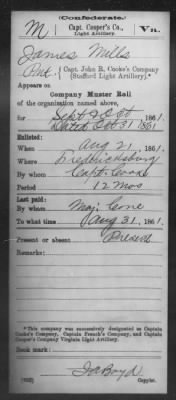 (Confederate.)
M Capt. Cooper's Co., Va.
Light Artillery.*
James Mills
Pvt., Capt. John R. Cooke's Company
(Stafford Light Artillery).*
Appears on
Company Muster Roll
of the organization named above,
for Sept & Oct 1861.
Dated Oct 31 1861
Enlisted:
When Aug 21, 1861.
Where Fredericksburg
By whom Capt. Cooke
Period 12 Mos
Last paid:
By whom Maj. Cone
To what time Aug 31, 1861.
Present or absent Present
Remarks:
*This company was successively designated as Captain
Cooke's Company, Captain French's Company, and Captain
Cooper's Company Virginia Light Artillery.
Book mark:
Boyd
Copyist.